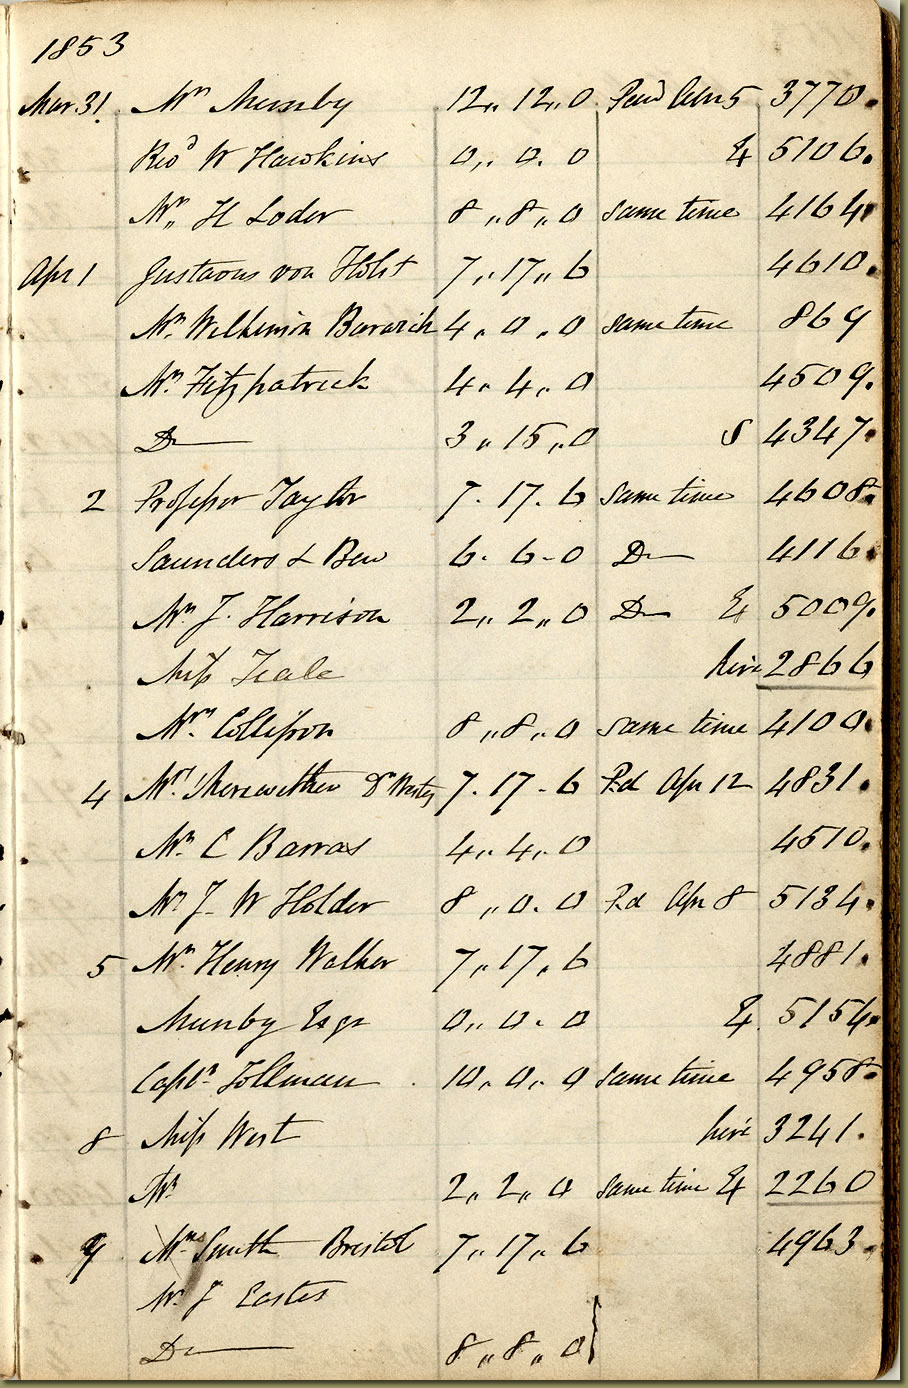 1853
Mar. 31. Mr Munby 12,, 12,, 0 Paid Apr 5 3770.
Revd W Hawkins 0,, 0. 0 E 5106.
Mr. H Loder 8,, 8,, 0 same time 4164.
Apr 1 Gustavus von Holst 7,, 17,, 6 4610.
Mr. Wilkinson 4,, 0,, 0 same time 869
Mr. Fitzpatrick 4,, 4,, 0 4509.
Do 3,, 15,, 0 S 4347.
2 Professor Taylor 7. 17. 6 same time 4608.
Saunders & Bew 6. 6-0 Do 4116.
Mr. J. Harrison 2,, 2,, 0 Do E 5009.
Miss Teale hire 2866
Mr. Collisson 8,, 8,, 0 same time 4100.
4 Mrs. Merewether 7. 17-6 Pd Apr 12 4831.
Mr. C Barras 4,, 4,, 0 4510.
Mr J-W Holder 8,, 0. 0 Pd Apr 8 5134.
5 Mr. Henry Walker 7,, 17,, 6 4881.
Munby Esqr 0,, 0. 0 E 5154.
Captn Tollman 10,, 0,, 0 same time 4958.
8 Miss West hire 3241.
Mr 2,, 2,, 0 same time E 2260
9 Mr Smith Bristol 7,, 17,, 6 4963.
Mr. J Eastes
Do 8,, 8,, 0